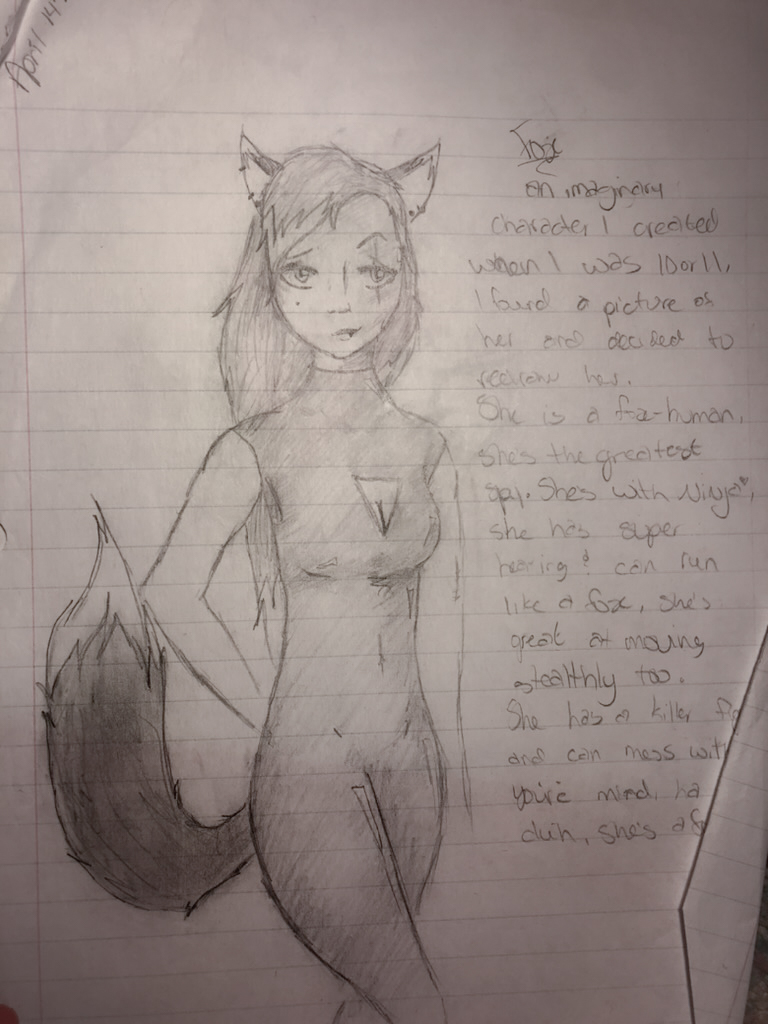 April 14
Fox
an imaginary
character I created
when I was 10 or 11,
I found a picture of
her and decided to
redraw her.
She is a fox-human,
she's the greatest
spy. She's with Ninja,
she has super
hearing & can run
like a fox, she's
great at moving
stealthly too.
She has a killer
and can mess with
you're mind, ha
duh, she's a